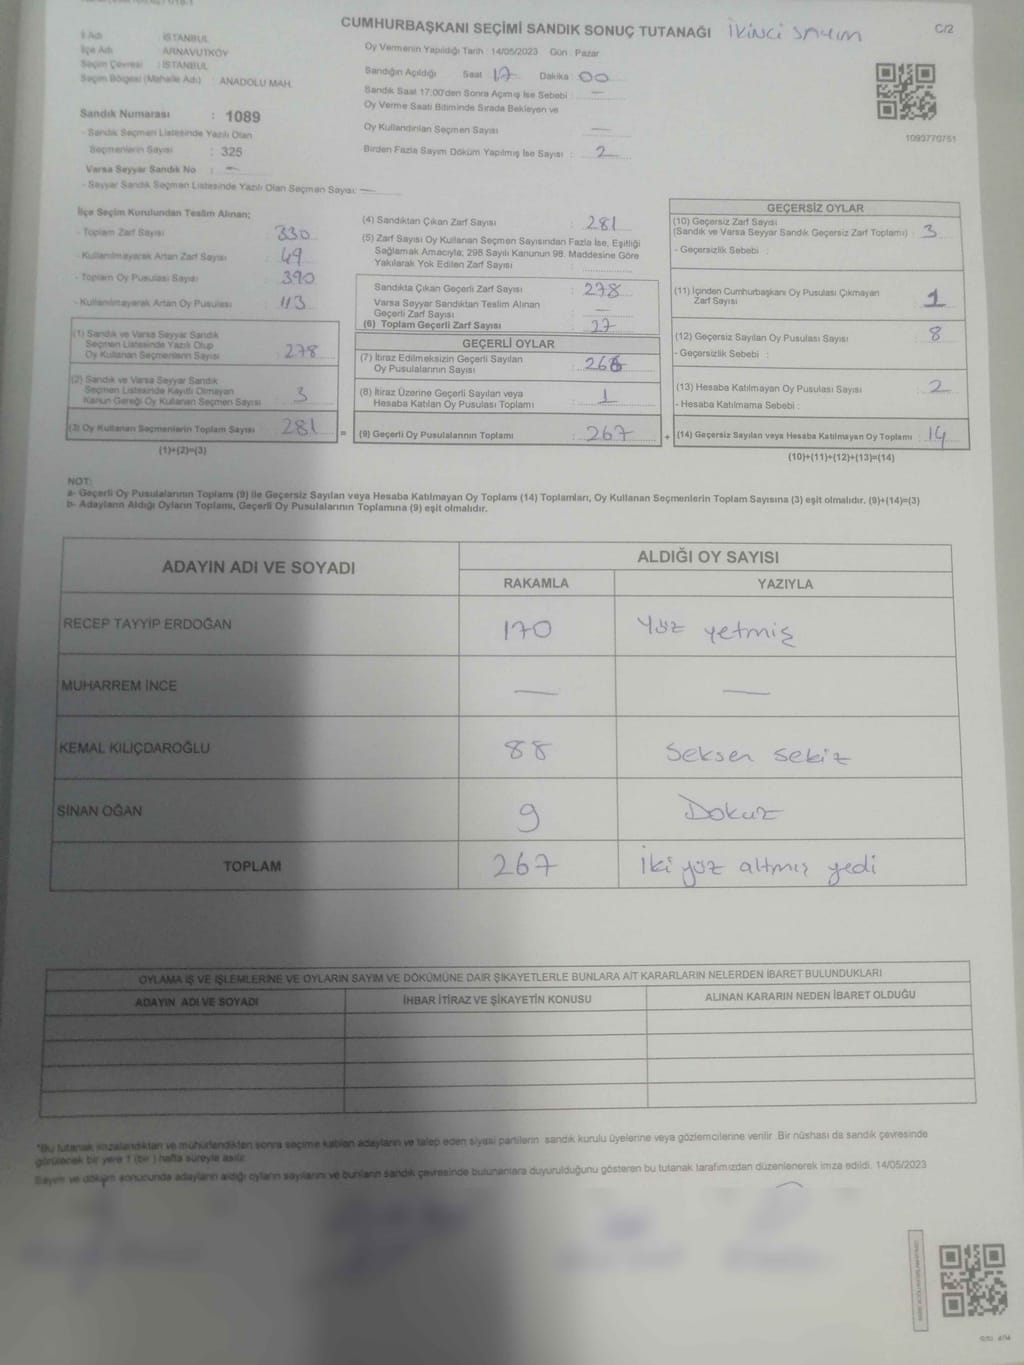 CUMHURBAŞKANI SEÇİMİ SANDIK SONUÇ TUTANAĞI İKİNCİ SAYIM
C/2
İl Adı : İSTANBUL
İlçe Adı : ARNAVUTKÖY
Seçim Çevresi : İSTANBUL
Seçim Bölgesi (Mahalle Adı) : ANADOLU MAH.
Sandık Numarası : 1089
- Sandık Seçmen Listesinde Yazılı Olan
Seçmenlerin Sayısı : 325
Varsa Seyyar Sandık No : —
- Seyyar Sandık Seçmen Listesinde Yazılı Olan Seçmen Sayısı: —
Oy Vermenin Yapıldığı Tarih : 14/05/2023 Gün : Pazar
Sandığın Açıldığı Saat 17 Dakika : 00
Sandık Saat 17:00'den Sonra Açımış İse Sebebi : —
Oy Verme Saati Bitiminde Sırada Bekleyen ve
Oy Kullandırılan Seçmen Sayısı : —
Birden Fazla Sayım Döküm Yapılmış İse Sayısı : 2
1093770751
İlçe Seçim Kurulundan Teslim Alınan;
- Toplam Zarf Sayısı : 330
- Kullanılmayarak Artan Zarf Sayısı : 49
- Toplam Oy Pusulası Sayısı : 390
- Kullanılmayarak Artan Oy Pusulası : 113
(1) Sandık ve Varsa Seyyar Sandık
Seçmen Listesinde Yazılı Olup
Oy Kullanan Seçmenlerin Sayısı : 278
(2) Sandık ve Varsa Seyyar Sandık
Seçmen Listesinde Kayıtlı Olmayan
Kanun Gereği Oy Kullanan Seçmen Sayısı : 3
(3) Oy Kullanan Seçmenlerin Toplam Sayısı : 281
(1)+(2)=(3)
(4) Sandıktan Çıkan Zarf Sayısı : 281
(5) Zarf Sayısı Oy Kullanan Seçmen Sayısından Fazla İse, Eşitliği
Sağlamak Amacıyla; 298 Sayılı Kanunun 98. Maddesine Göre
Yakılarak Yok Edilen Zarf Sayısı :
Sandıkta Çıkan Geçerli Zarf Sayısı : 278
Varsa Seyyar Sandıktan Teslim Alınan
Geçerli Zarf Sayısı : —
(6) Toplam Geçerli Zarf Sayısı : 27
GEÇERLİ OYLAR
(7) İtiraz Edilmeksizin Geçerli Sayılan
Oy Pusulalarının Sayısı : 266
(8) İtiraz Üzerine Geçerli Sayılan veya
Hesaba Katılan Oy Pusulası Toplamı : 1
= (9) Geçerli Oy Pusulalarının Toplamı : 267
GEÇERSİZ OYLAR
(10) Geçersiz Zarf Sayısı
(Sandık ve Varsa Seyyar Sandık Geçersiz Zarf Toplamı) : 3
- Geçersizlik Sebebi :
(11) İçinden Cumhurbaşkanı Oy Pusulası Çıkmayan
Zarf Sayısı 1
(12) Geçersiz Sayılan Oy Pusulası Sayısı : 8
- Geçersizlik Sebebi :
(13) Hesaba Katılmayan Oy Pusulası Sayısı : 2
- Hesaba Katılmama Sebebi :
+ (14) Geçersiz Sayılan veya Hesaba Katılmayan Oy Toplamı : 14
(10)+(11)+(12)+(13)=(14)
NOT:
a- Geçerli Oy Pusulalarının Toplamı (9) ile Geçersiz Sayılan veya Hesaba Katılmayan Oy Toplamı (14) Toplamları, Oy Kullanan Seçmenlerin Toplam Sayısına (3) eşit olmalıdır. (9)+(14)=(3)
b- Adayların Aldığı Oyların Toplamı, Geçerli Oy Pusulalarının Toplamına (9) eşit olmalıdır.
ADAYIN ADI VE SOYADI ALDIĞI OY SAYISI
RAKAMLA YAZIYLA
RECEP TAYYİP ERDOĞAN 170 Yüz yetmiş
MUHARREM İNCE — —
KEMAL KILIÇDAROĞLU 88 Seksen sekiz
SİNAN OĞAN 9 Dokuz
TOPLAM 267 İki yüz altmış yedi
OYLAMA İŞ VE İŞLEMLERİNE VE OYLARIN SAYIM VE DÖKÜMÜNE DAİR ŞİKAYETLERLE BUNLARA AİT KARARLARIN NELERDEN İBARET BULUNDUKLARI
ADAYIN ADI VE SOYADI İHBAR İTİRAZ VE ŞİKAYETİN KONUSU ALINAN KARARIN NEDEN İBARET OLDUĞU
"Bu tutanak imzalandıktan ve mühürlendikten sonra seçime katılan adayların ve talep eden siyasi partilerin sandık kurulu üyelerine veya gözlemcilerine verilir .Bir nüshası da sandık çevresinde
görülecek bir yere 1 (bir ) hafta süreyle asılır.
Sayım ve döküm sonucunda adayların aldığı oyların sayılarını ve bunların sandık çevresinde bulunanlara duyurulduğunu gösteren bu tutanak tarafımızdan düzenlenerek imza edildi. 14/05/2023